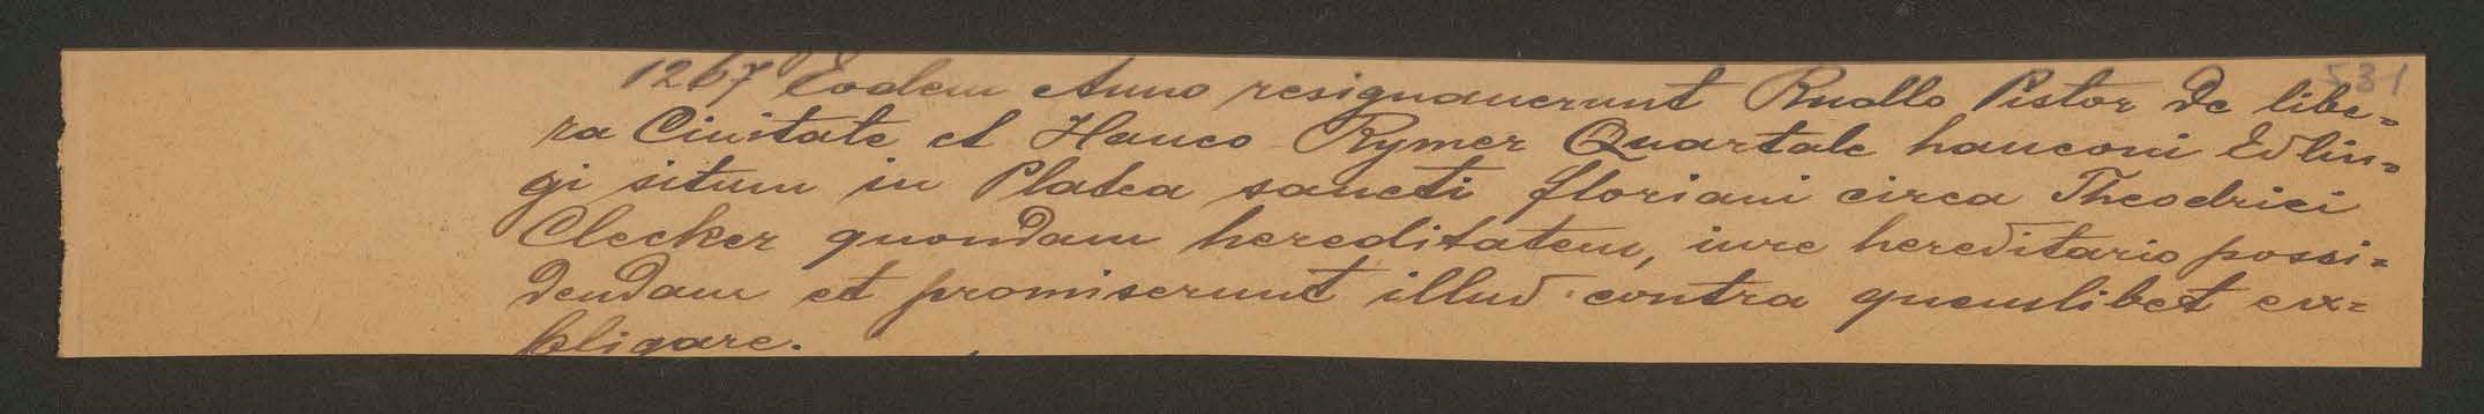 531
1267 Eodem Anno resignauerunt Rudlo Pistor de libe=
ra Ciuitate et Hanco Rymer Quartale hanconi Edlin=
gi situm in Platea sancti floriani circa Theodrici
Clecker quondam hereditatem, iure hereditario possi=
dendam et promiserunt illud contra quemlibet ex=
pligare.